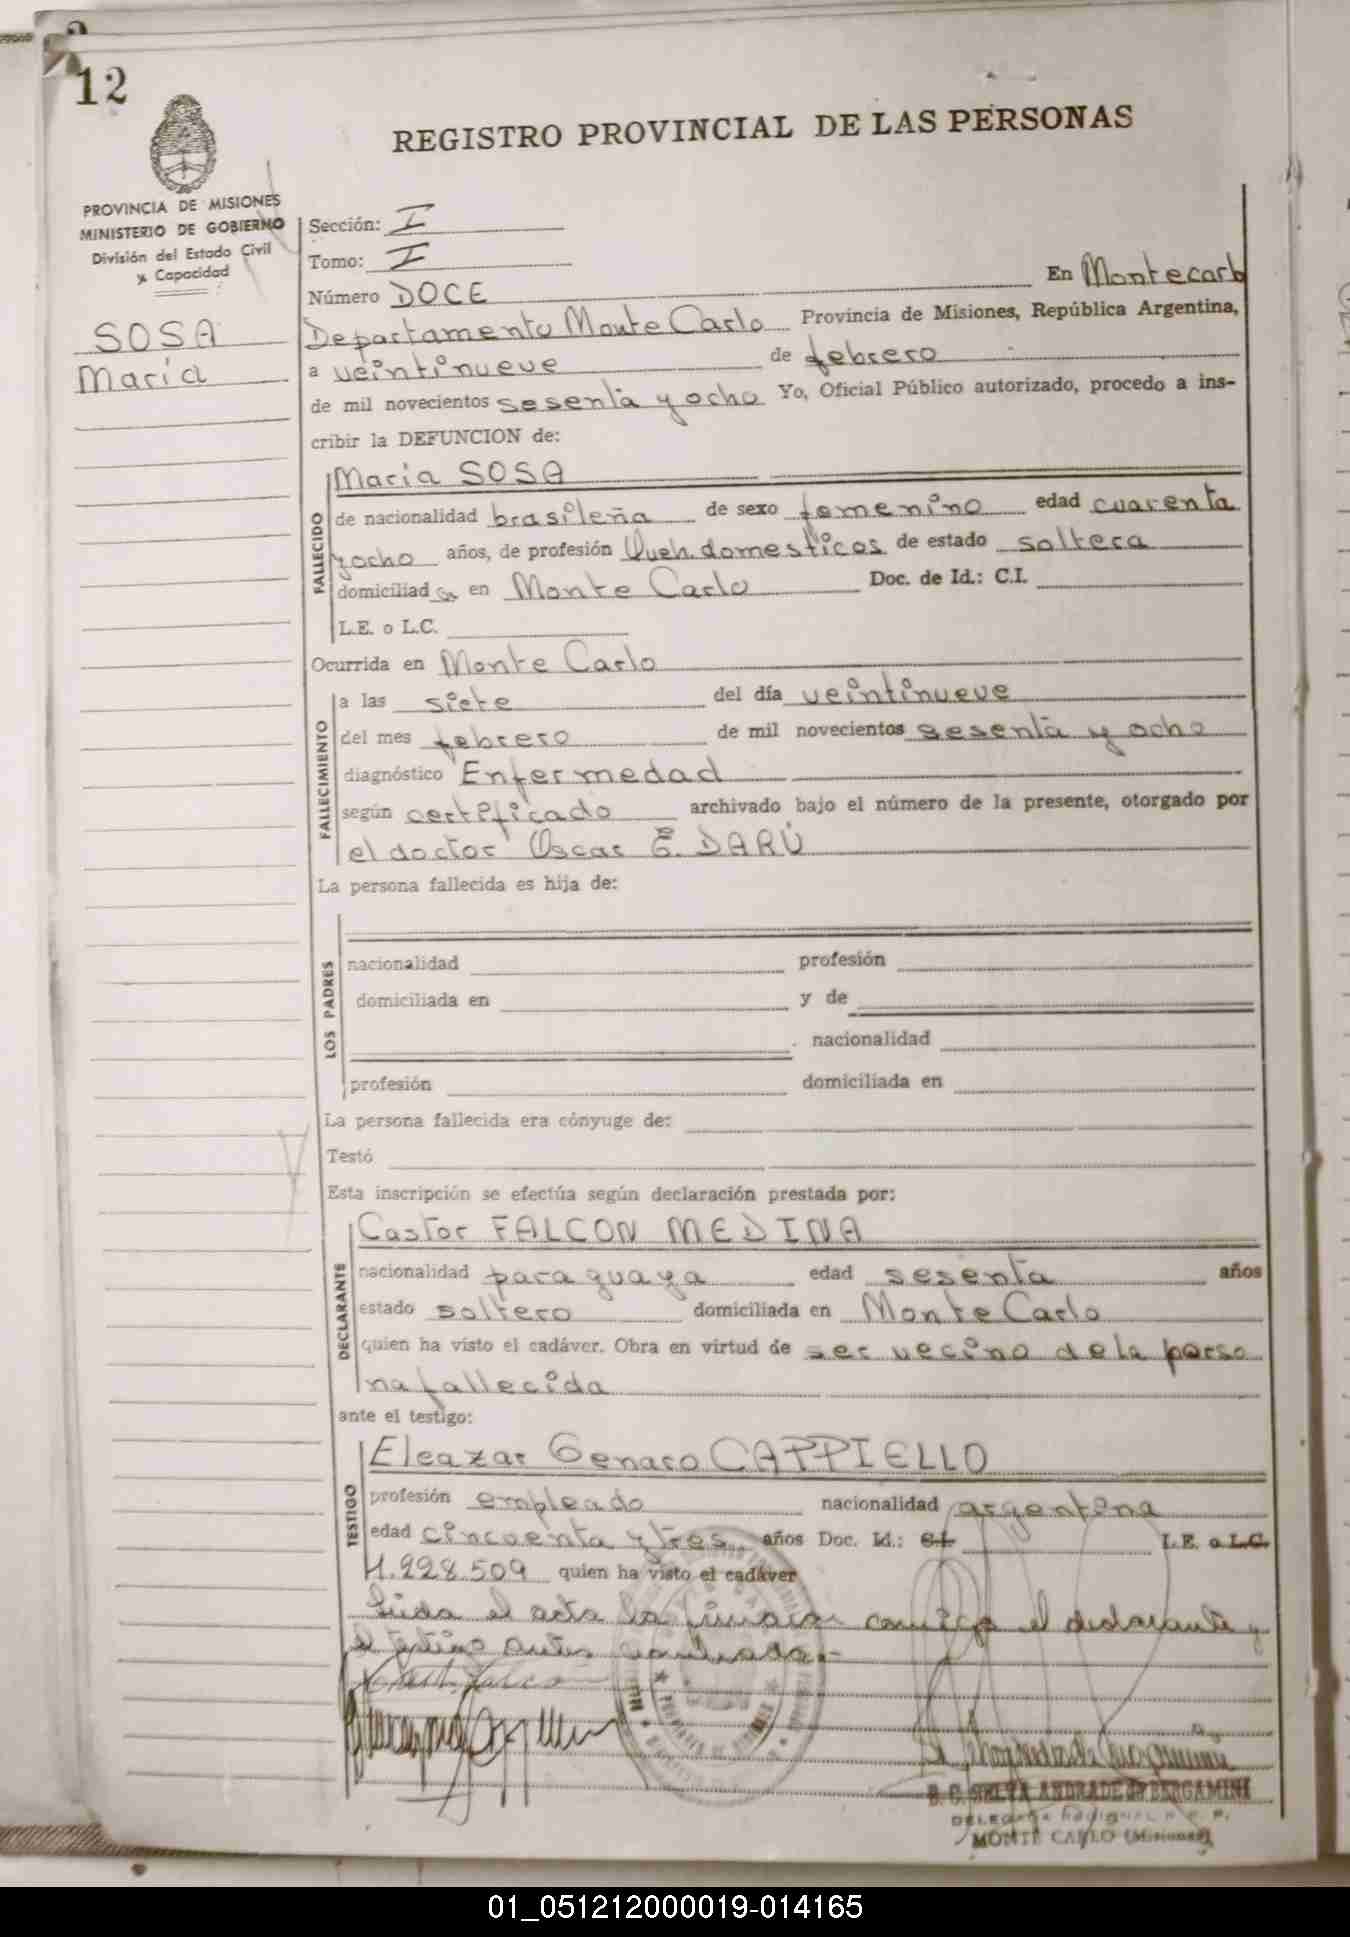 12
REGISTRO PROVINCIAL DE LAS PERSONAS
PROVINCIA DE MISIONES
MINISTERIO DE GOBIERNO
División del Estado Civil
y Capacidad
SOSA
María
Sección: I
Tomo: I
Número DOCE En Montecarlo
Departamento Monte Carlo Provincia de Misiones, República Argentina,
a veintinueve de febrero
de mil novecientos sesenta y ocho Yo, Oficial Público autorizado, procedo a ins-
cribir la DEFUNCION de:
FALLECIDO
María SOSA
de nacionalidad brasileña de sexo femenino edad cuarenta
yocho años, de profesión Queh. domesticos de estado soltera
domiciliada en Monte Carlo Doc. de Id.: C.I.
L.E. o L.C.
Ocurrida en Monte Carlo
FALLECIMIENTO
a las siete del día veintinueve
del mes febrero de mil novecientos sesenta y ocho
diagnóstico Enfermedad
según certificado archivado bajo el número de la presente, otorgado por
el doctor Oscar E. DARÚ
La persona fallecida es hija de:
LOS PADRES
nacionalidad profesión
domiciliada en y de
nacionalidad
profesión domiciliada en
La persona fallecida era cónyuge de:
Testó
Esta inscripción se efectúa según declaración prestada por:
DECLARANTE
Castor FALCON MEDINA
nacionalidad paraguaya edad sesenta años
estado soltero domiciliada en Monte Carlo
quien ha visto el cadáver. Obra en virtud de ser vecino de la perso
na fallecida
ante el testigo:
TESTIGO
Eleazar Genaro CAPPIELLO
profesión empleado nacionalidad argentina
edad cincuenta y tres años Doc. Id.: CI L.E. o L.C.
4.228.509 quien ha visto el cadáver
Leída el acta la firman conmigo el declarante y
el testigo antes nombrado.-
B. C. SELVA ANDRADE DE BERGAMINI
MONTE CARLO (Misiones)
01_051212000019-014165